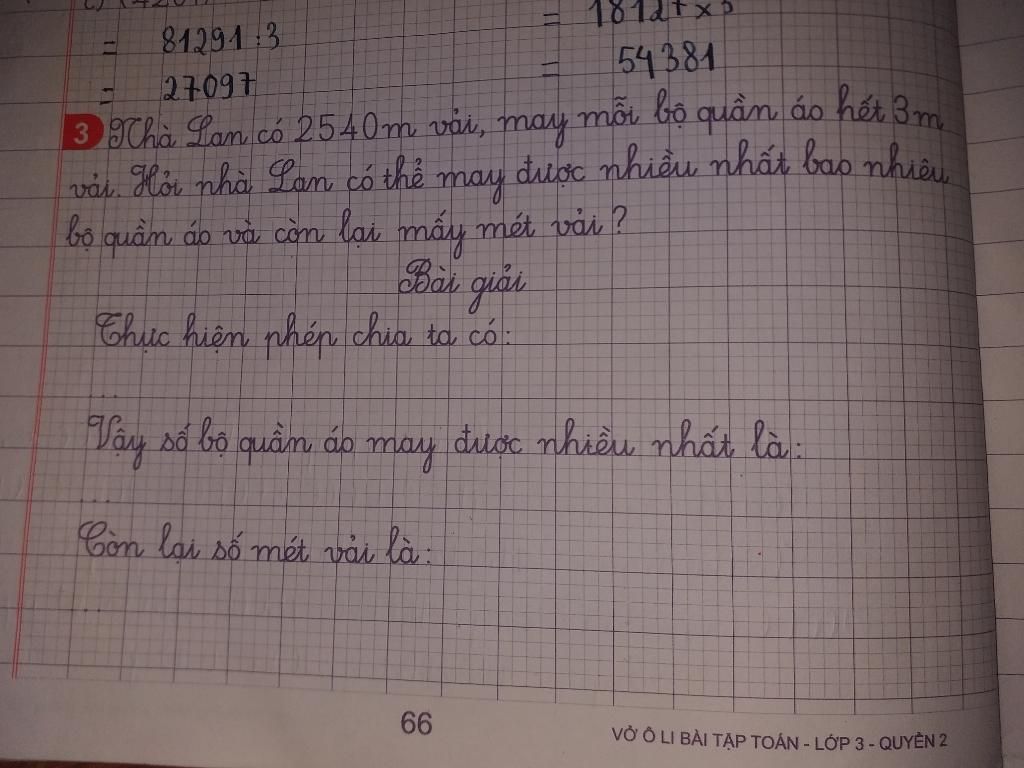 = 81291 : 3
= 54381
= 27097
3 Nhà Lan có 2540m vải, may mỗi bộ quần áo hết 3m
vải. Hỏi nhà Lan có thể may được nhiều nhất bao nhiêu
bộ quần áo và còn lại mấy mét vải?
Bài giải
Thực hiện phép chia ta có:
....
Vậy số bộ quần áo may được nhiều nhất là:
....
Còn lại số mét vải là:
....
66
VỞ Ô LI BÀI TẬP TOÁN - LỚP 3 - QUYỂN 2